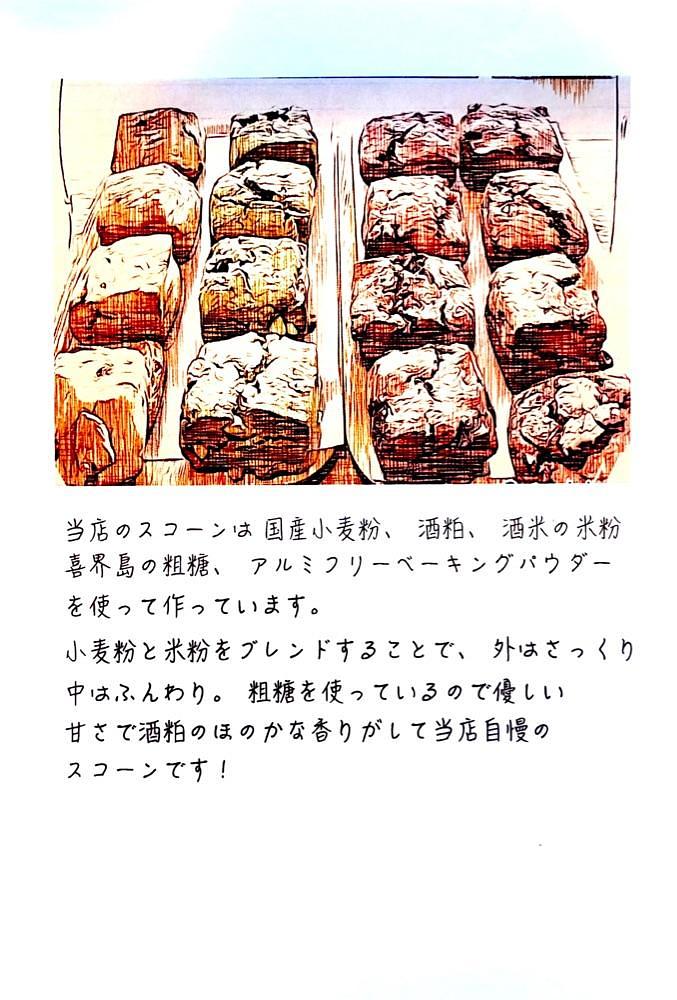 当店のスコーンは国産小麦粉、酒粕、酒米の米粉
喜界島の粗糖、アルミフリーベーキングパウダー
を使って作っています。
小麦粉と米粉をブレンドすることで、外はさっくり
中はふんわり。粗糖を使っているので優しい
甘さで酒粕のほのかな香りがして当店自慢の
スコーンです！